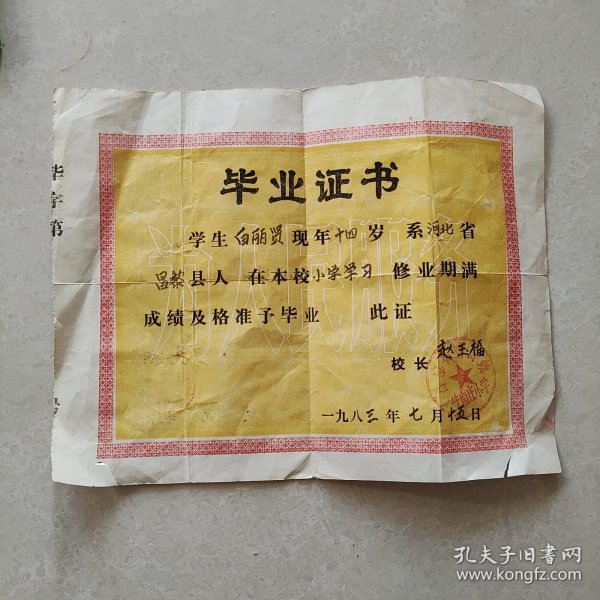 毕业证书
学生白丽贤现年十四岁 系河北省
昌黎县人 在本校小学学习 修业期满
成绩及格准予毕业 此证
校长 赵玉福
一九八三年七月十五日
毕字第
号
为人民服务
孔夫子旧书网
www.kongfz.com